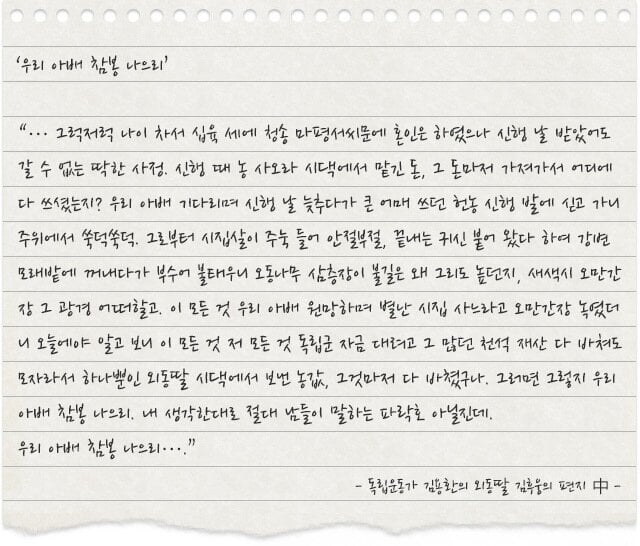 ‘우리 아배 참봉 나으리’
“··· 그럭저럭 나이 차서 십육 세에 청송 마평서씨문에 혼인은 하였으나 신행 날 받았어도
갈 수 없는 딱한 사정. 신행 때 농 사오라 시댁에서 맡긴 돈, 그 돈마저 가져가서 어디에
다 쓰셨는지? 우리 아배 기다리며 신행 날 늦추다가 큰 어매 쓰던 헌농 신행 발에 싣고 가니
주위에서 쑥덕쑥덕. 그로부터 시집살이 주눅 들어 안절부절, 끝내는 귀신 붙어 왔다 하여 강변
모래밭에 꺼내다가 부수어 불태우니 오동나무 삼층장이 불길은 왜 그리도 높던지, 새색시 오만간
장 그 광경 어떠할고. 이 모든 것 우리 아배 원망하며 별난 시집 사느라고 오만간장 녹였더
니 오늘에야 알고 보니 이 모든 것 저 모든 것 독립군 자금 대려고 그 많던 천석 재산 다 바쳐도
모자라서 하나뿐인 외동딸 시댁에서 보낸 농값, 그것마저 다 바쳤구나. 그러면 그렇지 우리
아배 참봉 나으리. 내 생각한대로 절대 남들이 말하는 파락호 아닐진데.
우리 아배 참봉 나으리····.”
- 독립운동가 김용환의 외동딸 김후웅의 편지 中 -